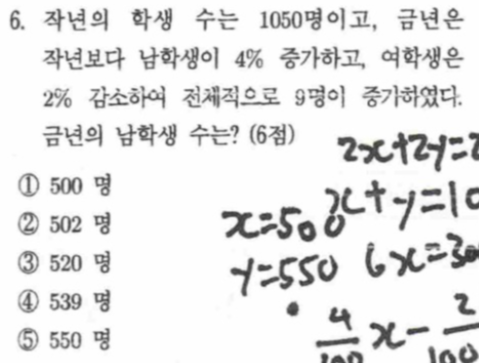 6. 작년의 학생 수는 1050명이고, 금년은
작년보다 남학생이 4% 증가하고, 여학생은
2% 감소하여 전체적으로 9명이 증가하였다.
금년의 남학생 수는? (6점)
① 500 명
② 502 명
③ 520 명
④ 539 명
⑤ 550 명
2x+2y=2
x+y=10
x=500
y=550
6x=300
4/100 x - 2/100